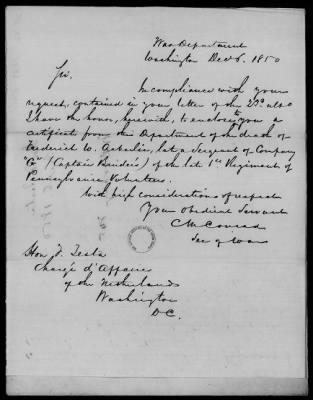 War Department
Washington Dec 6. 1850
Sir.
In compliance with your
request, contained in your letter of the 23d ulto
I have the honor, herewith, to enclose to you a
certificate from this Department of the death of
Frederick W. late a Sergeant of Company
"G" (Captain Binder's) of the late 1st Regiment of
Pennsylvania Volunteers.
With high considerations of respect
Your Obedient Servant
C M Conrad
Sec of War
Hon J. Testa
Chargé d'Affaire
of the Netherlands
Washington
D.C.